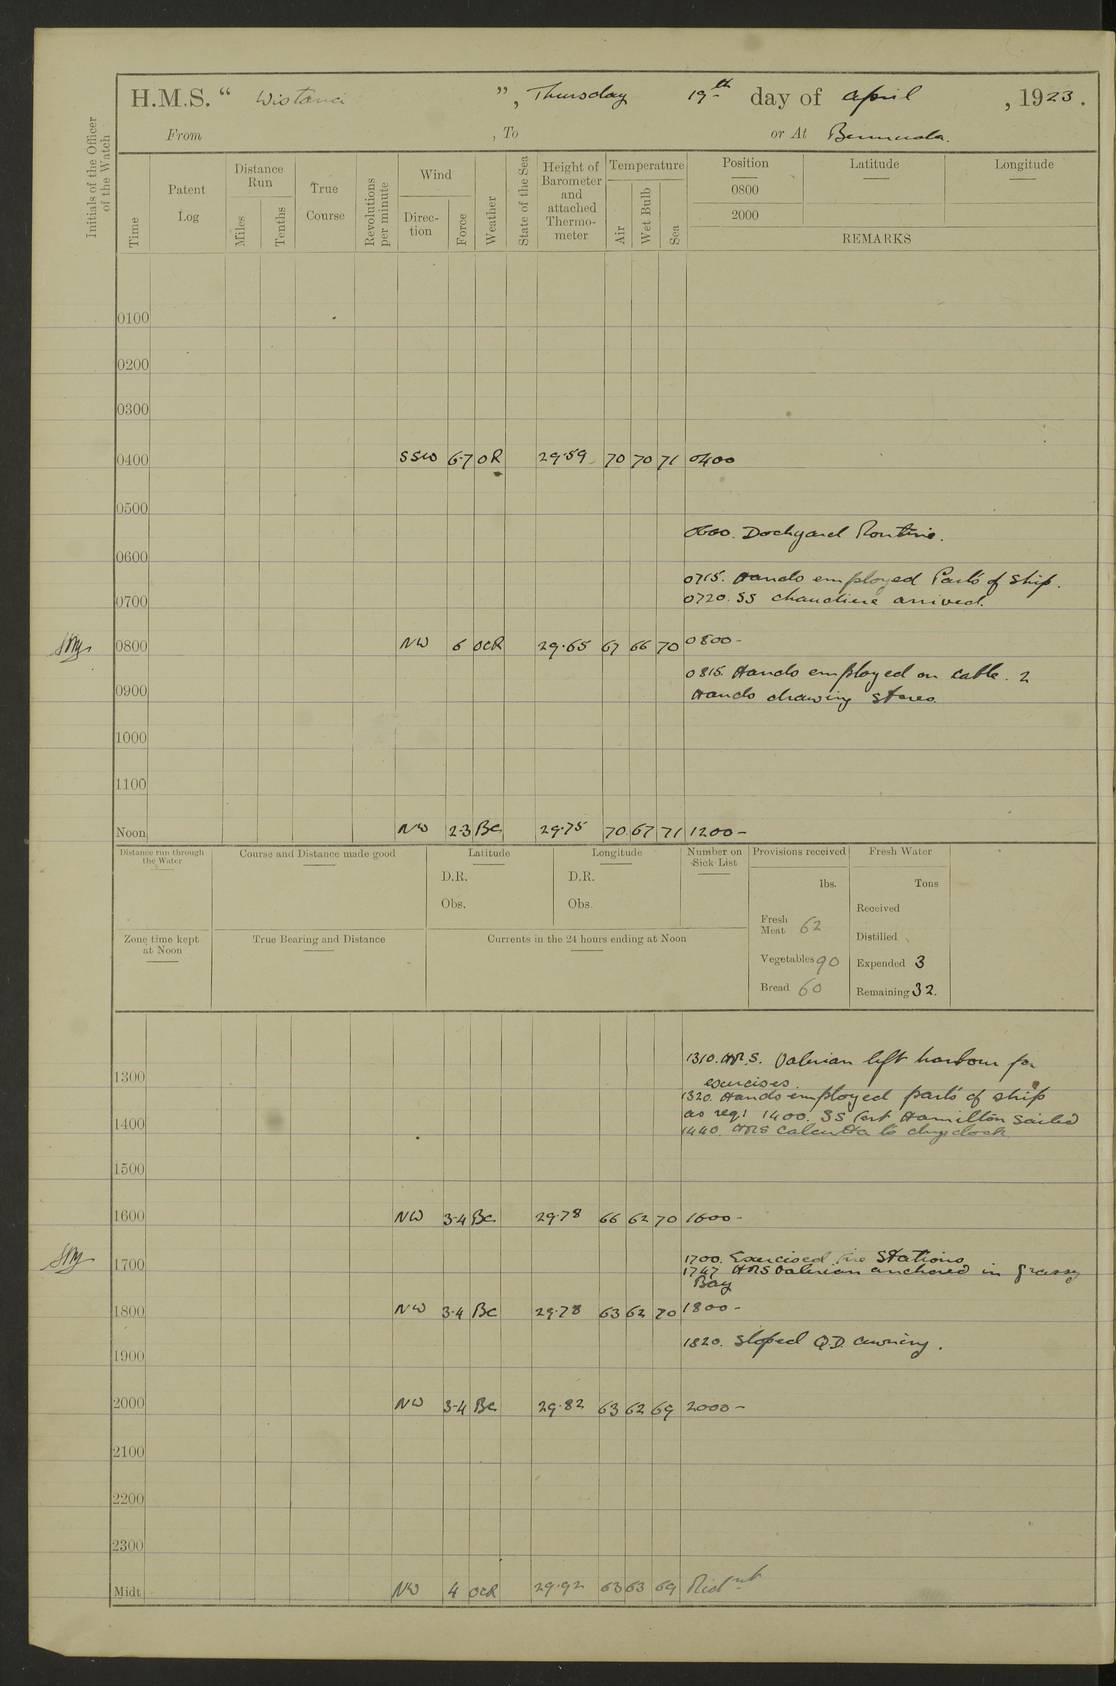 H.M.S. “ Wistaria ”, Thursday 19th day of April, 1923.
From , To or At Bermuda.
Initials of the Officer of the Watch
Time
Patent Log
Distance Run
Miles
Tenths
True Course
Revolutions per minute
Wind
Direction
Force
Weather
State of the Sea
Height of Barometer and attached Thermometer
Temperature
Air
Wet Bulb
Sea
Position
0800
2000
Latitude
Longitude
REMARKS
0100
0200
0300
0400 SSW 6-7 OR 29·59 70 70 71 0400
0500
0600. Dockyard Routine.
0600
0715. Hands employed Parts of Ship.
0700 0720. SS Chaudiere arrived.
0800 NW 6 OCR 29·65 67 66 70 0800-
0815. Hands employed on cable. 2
0900 Hands drawing stores.
1000
1100
Noon NW 2-3 BC 29·75 70 67 71 1200-
Distance run through the Water
Course and Distance made good
Latitude
D.R.
Obs.
Longitude
D.R.
Obs.
Number on Sick List
Provisions received
lbs.
Fresh Meat 62
Vegetables 90
Bread 60
Fresh Water
Tons
Received
Distilled
Expended 3
Remaining 32.
Zone time kept at Noon
True Bearing and Distance
Currents in the 24 hours ending at Noon
1310. HMS. Valerian left harbour for
1300 exercises.
1320. Hands employed parts of ship
1400 as req: 1400. SS Fort Hamilton Sailed
1440. HMS Calcutta to dry dock
1500
1600 NW 3-4 BC 29·78 66 62 70 1600-
1700. Exercised fire Stations
1700 1747 HMS Valerian anchored in Grassy
Bay
1800 NW 3-4 BC 29·78 63 62 70 1800-
1820. Sloped Q.D. awning.
1900
2000 NW 3-4 BC 29·82 63 62 69 2000-
2100
2200
2300
Midt NW 4 OCR 29·92 63 63 69 Midnt